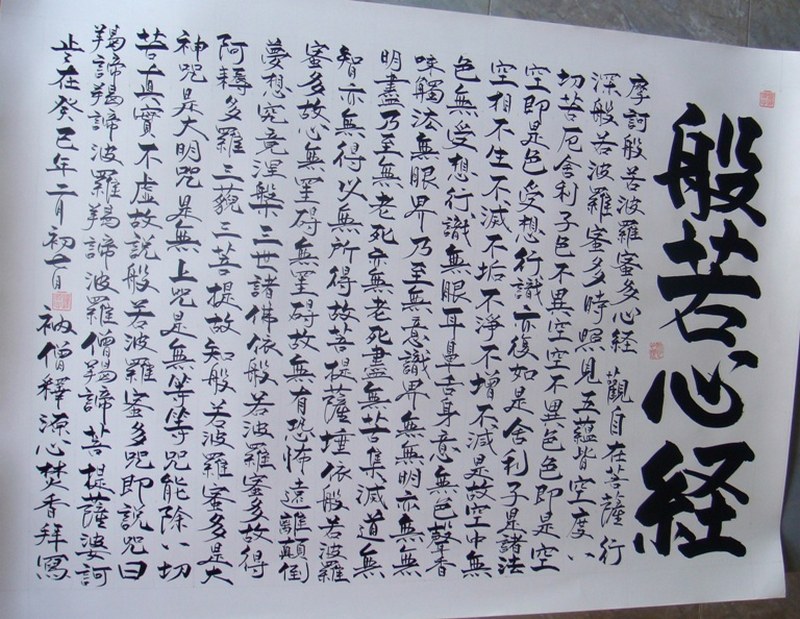 般若心経
摩訶般若波羅蜜多心経 觀自在菩薩行
深般若波羅蜜多時照見五蘊皆空度一
切苦厄舍利子色不異空空不異色色即是空
空即是色受想行識亦復如是舍利子是諸法
空相不生不滅不垢不淨不增不減是故空中無
色無受想行識無眼耳鼻舌身意無色聲香
味觸法無眼界乃至無意識界無無明亦無無
明盡乃至無老死亦無老死盡無苦集滅道無
智亦無得以無所得故菩提薩埵依般若波羅
蜜多故心無罣碍無罣碍故無有恐怖遠離顛倒
夢想究竟涅槃三世諸佛依般若波羅蜜多故得
阿耨多羅三藐三菩提故知般若波羅蜜多是大
神咒是大明咒是無上咒是無等等咒能除一切
苦真實不虛故説般若波羅蜜多咒即説咒曰
羯諦羯諦波羅羯諦波羅僧羯諦菩提薩婆訶
在癸巳年二月初 衲僧釋源心焚香拜寫